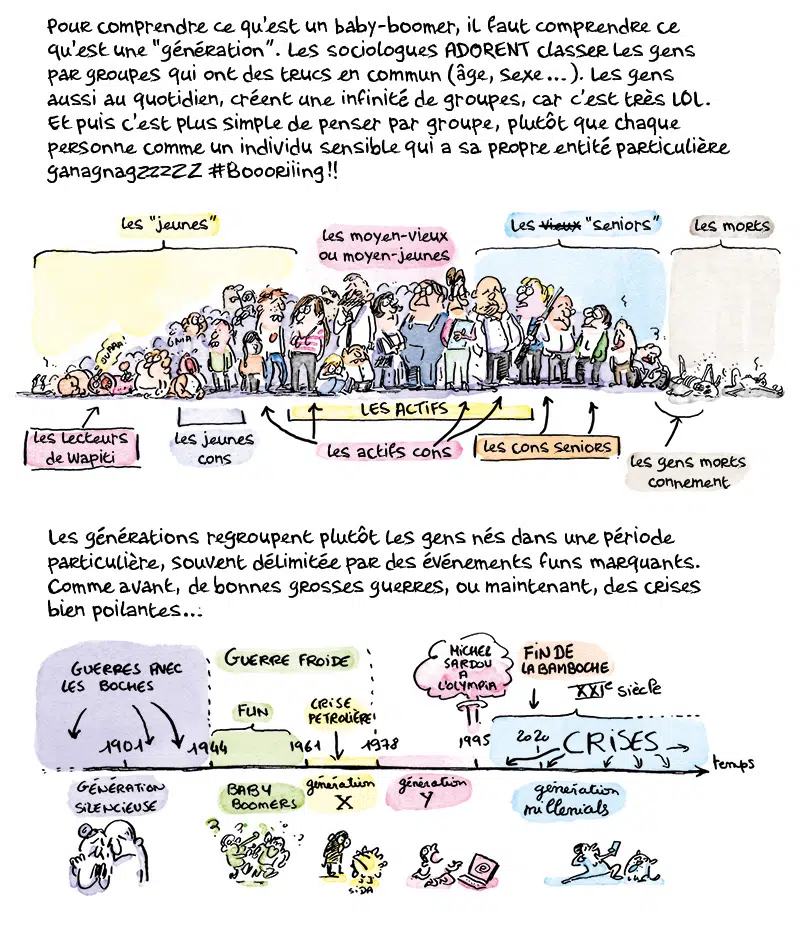 Pour comprendre ce qu'est un baby-boomer, il faut comprendre ce
qu'est une "génération". Les sociologues ADORENT classer les gens
par groupes qui ont des trucs en commun (âge, sexe...). Les gens
aussi au quotidien, créent une infinité de groupes, car c'est très LOL.
Et puis c'est plus simple de penser par groupe, plutôt que chaque
personne comme un individu sensible qui a sa propre entité particulière
ganagnagzzzzz #Boooriiing!!
les "jeunes"
les moyen-vieux
ou moyen-jeunes
les vieux "seniors"
les morts
OURRA
GNIA
LES ACTIFS
les lecteurs
de Wapiti
les jeunes
cons
les actifs cons
les cons seniors
les gens morts
connement
Les générations regroupent plutôt les gens nés dans une période
particulière, souvent délimitée par des événements funs marquants.
Comme avant, de bonnes grosses guerres, ou maintenant, des crises
bien poilantes...
GUERRES AVEC
LES BOCHES
GUERRE FROIDE
FUN
CRISE
PETROLIÈRE
MICHEL
SARDOU
A
L'OLYMPIA
FIN DE
LA BAMBOCHE
XXIe siècle
1901
1944
1961
1978
1995
2020
CRISES
temps
GÉNÉRATION
SILENCIEUSE
BABY
BOOMERS
génération
X
génération
Y
génération
millenials
SIDA